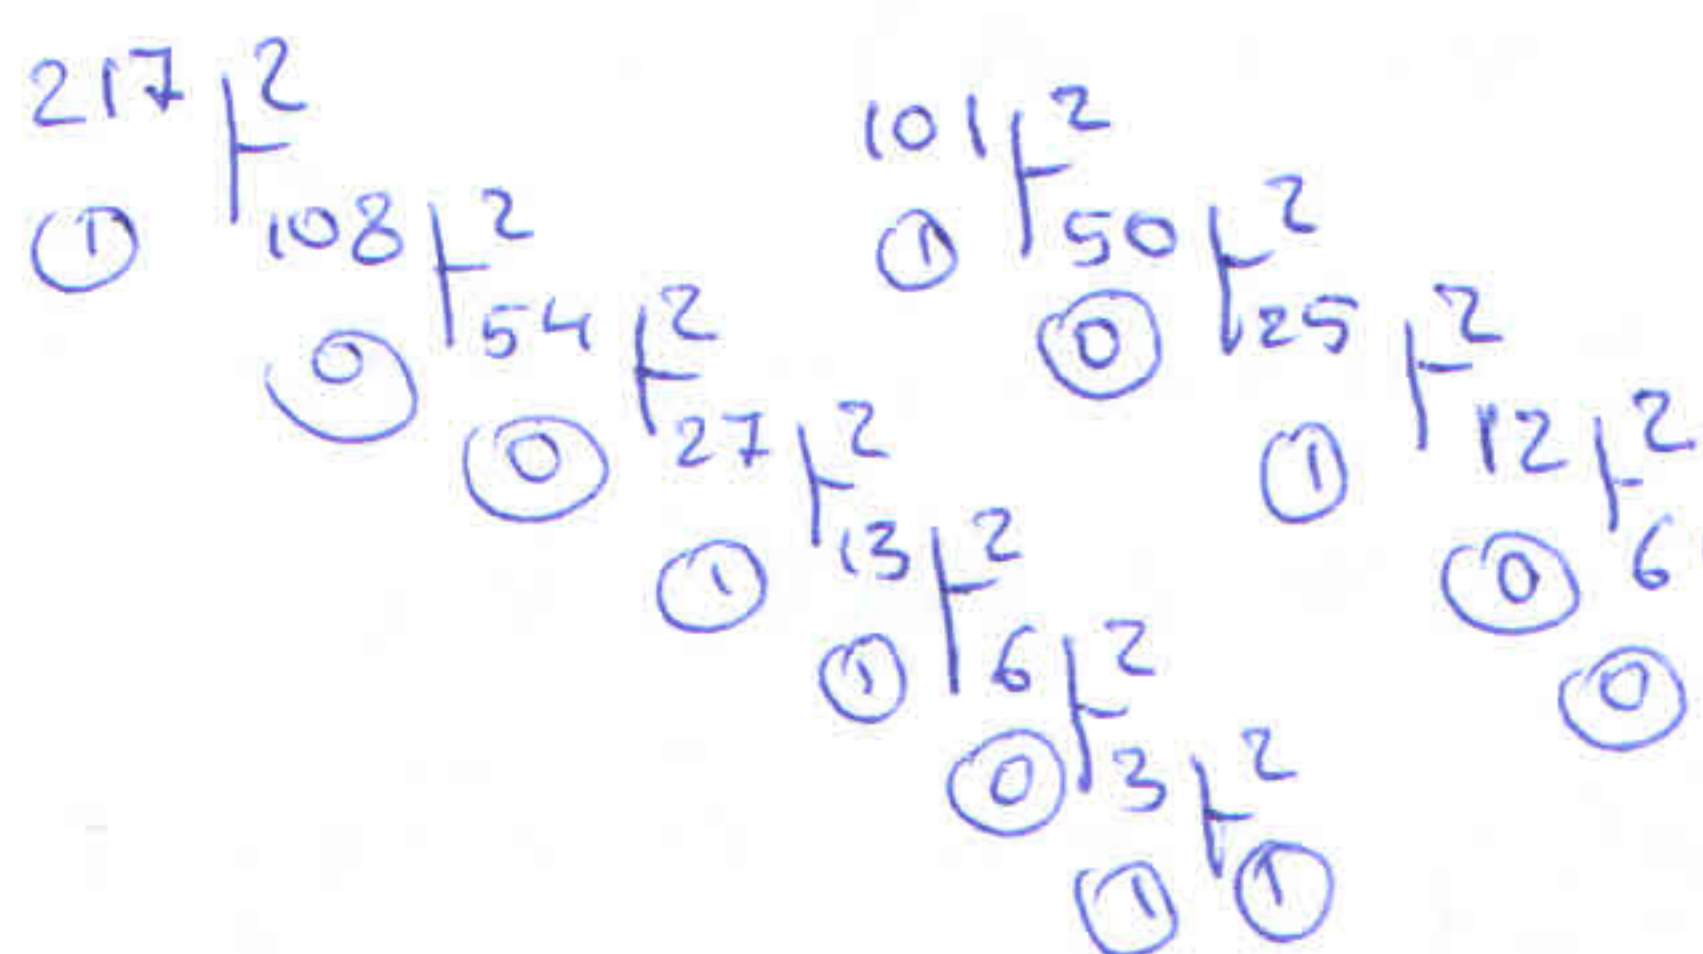 217 2
① 108 2
⓪ 54 2
⓪ 27 2
① 13 2
① 6 2
⓪ 3 2
① ①
101 2
① 50 2
⓪ 25 2
① 12 2
⓪ 6
⓪